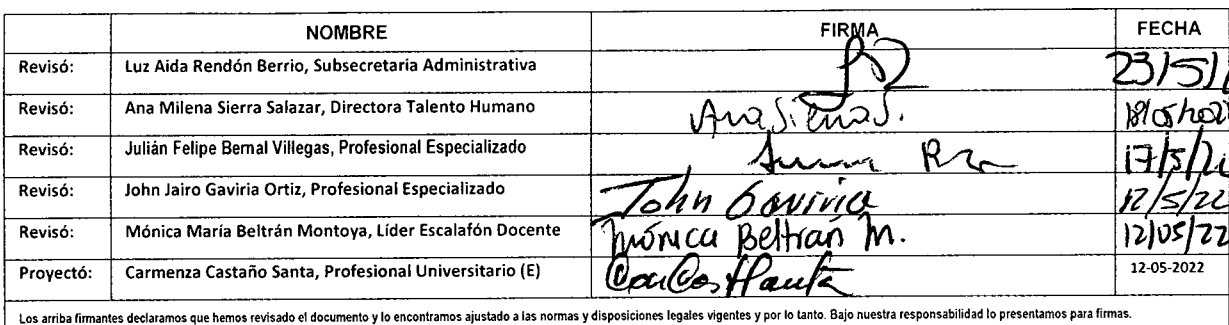 NOMBRE FIRMA FECHA
Revisó: Luz Aida Rendón Berrio, Subsecretaria Administrativa 23/5/
Revisó: Ana Milena Sierra Salazar, Directora Talento Humano Ana Sierra S.
Revisó: Julián Felipe Bernal Villegas, Profesional Especializado 17/5/
Revisó: John Jairo Gaviria Ortiz, Profesional Especializado John Gaviria 12/5/22
Revisó: Mónica María Beltrán Montoya, Líder Escalafón Docente Mónica Beltrán M. 12/05/22
Proyectó: Carmenza Castaño Santa, Profesional Universitario (E) 12-05-2022
Los arriba firmantes declaramos que hemos revisado el documento y lo encontramos ajustado a las normas y disposiciones legales vigentes y por lo tanto. Bajo nuestra responsabilidad lo presentamos para firmas.